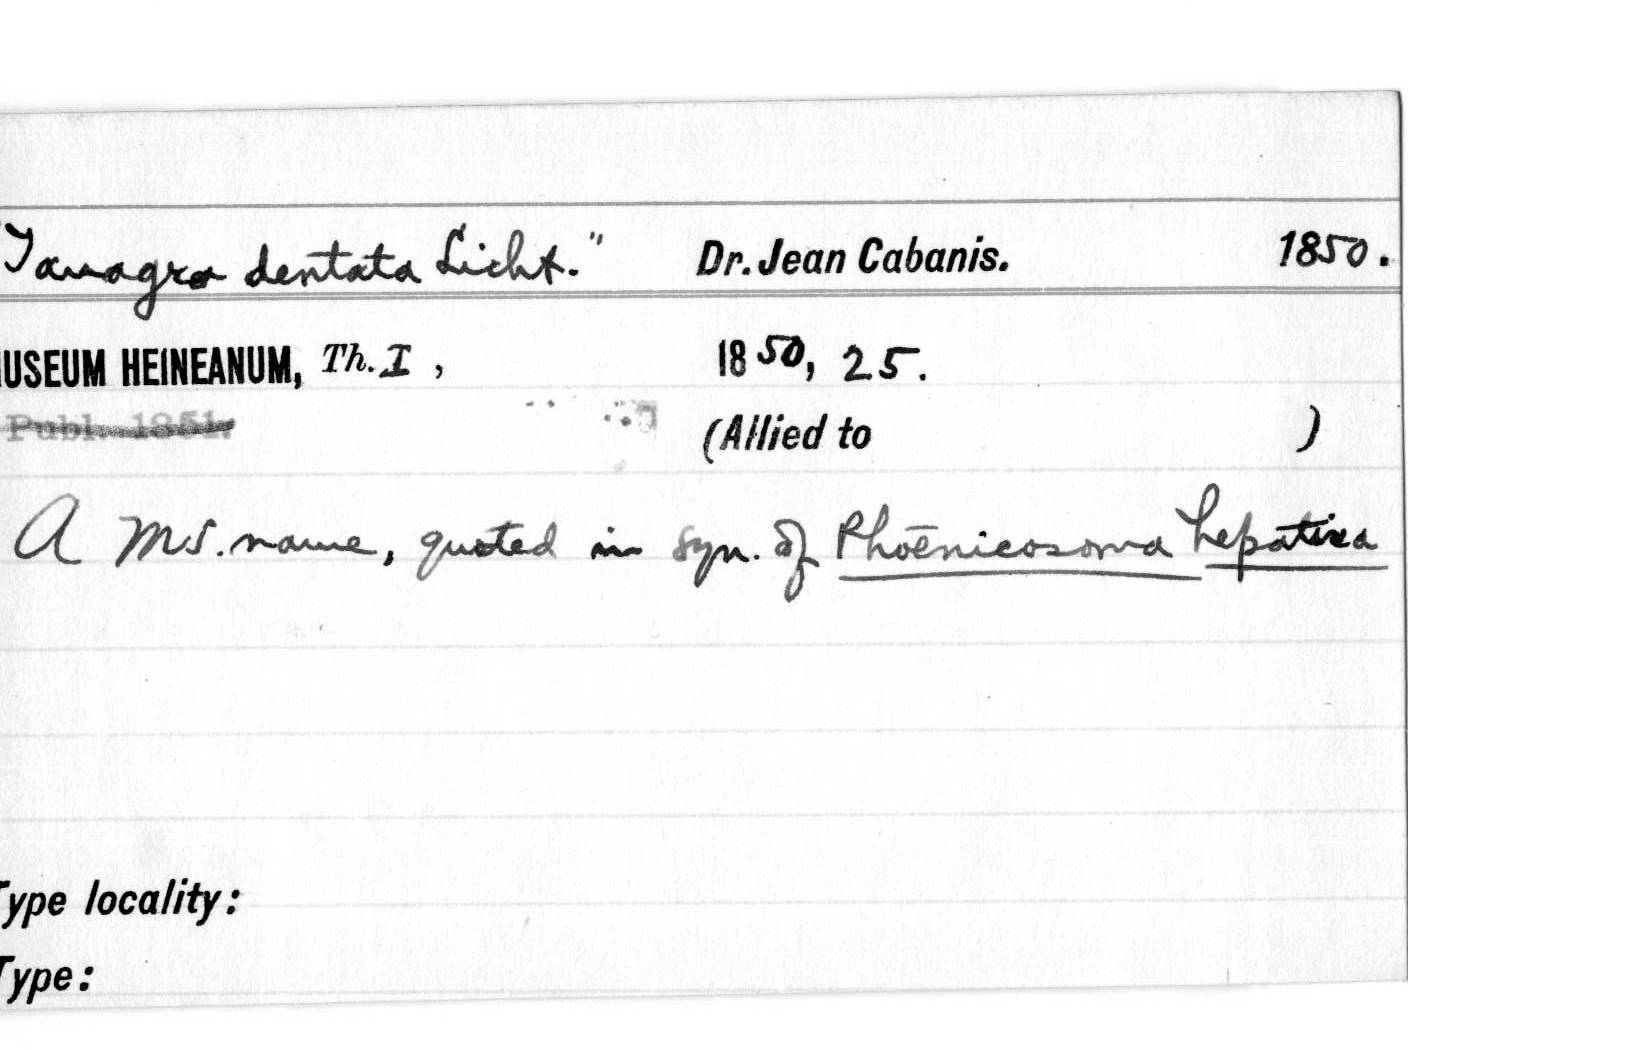 "Tanagra dentata Licht." Dr. Jean Cabanis. 1850.
USEUM HEINEANUM, Th. I, 1850, 25.
Publ. 1851.
(Allied to )
A MS. name, quoted in syn. of Phoenicosoma hepatica
Type locality:
Type: